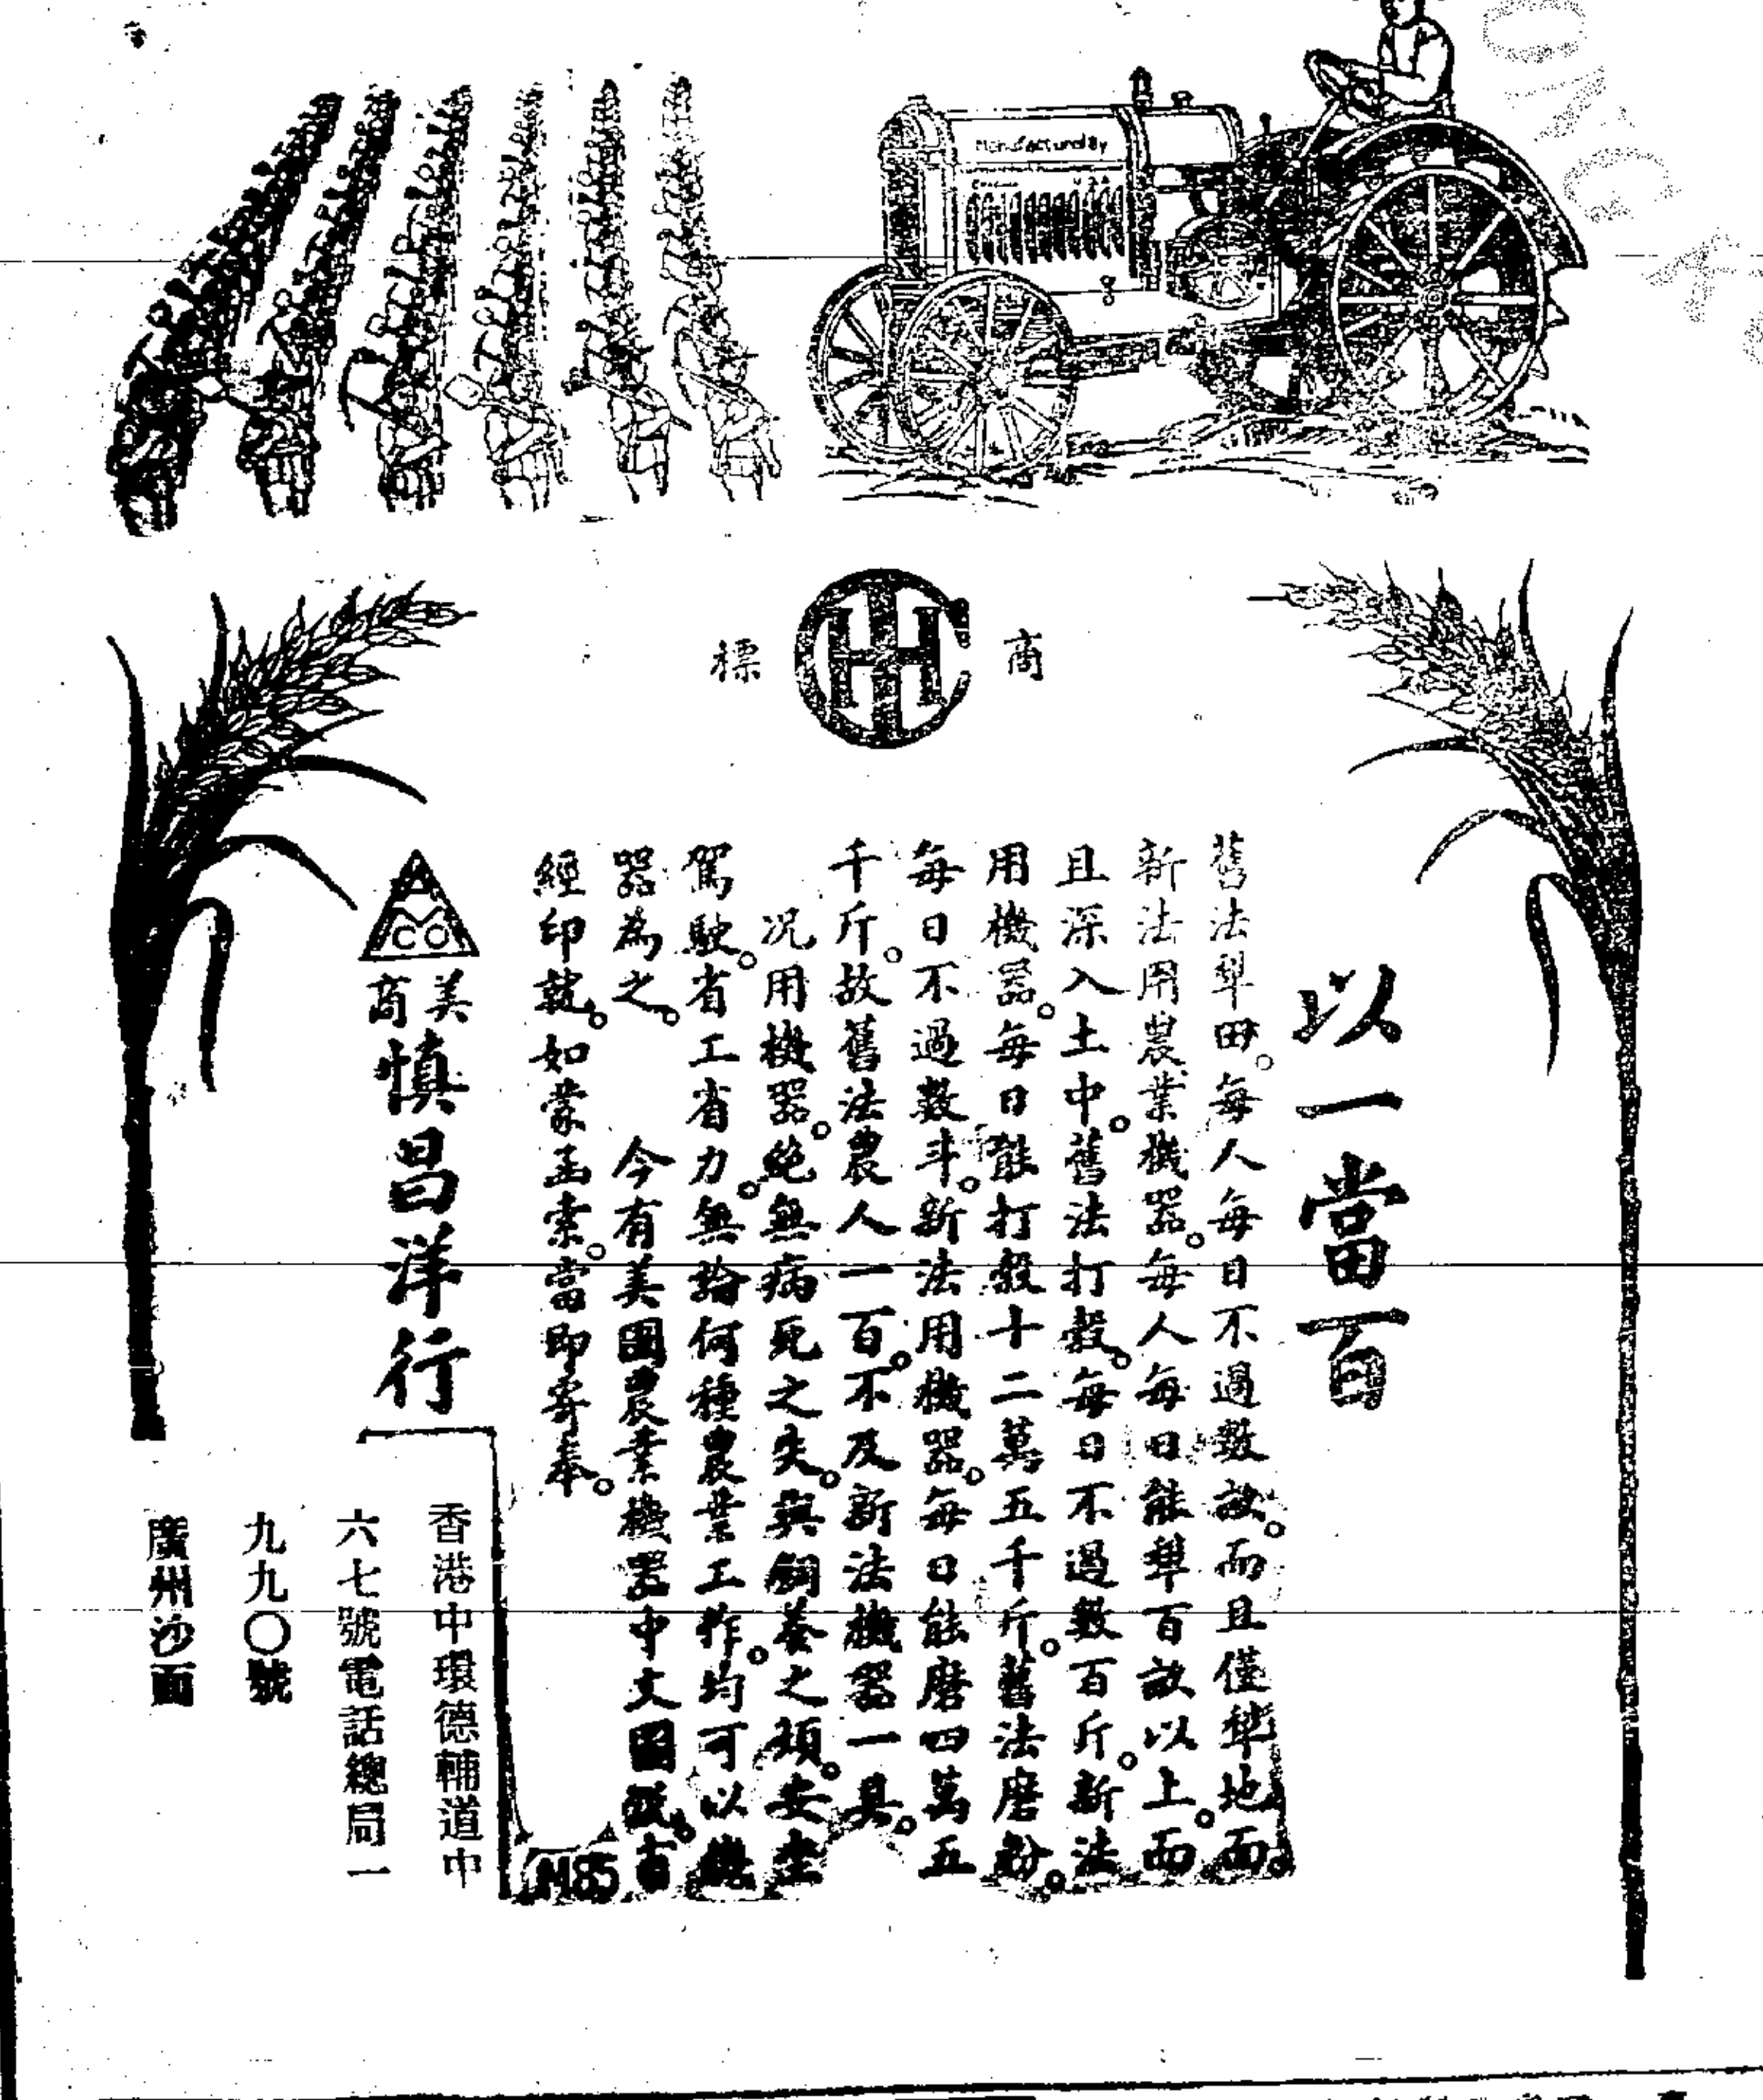 Manufactured By
U S A
商 IHC 標
以一當百
舊法犁田。每人每日不過數畝。而且僅犂地面。
新法用農業機器。每人每日能犂百畝以上。而
且深入土中。舊法打穀。每日不過數百斤。新法
用機器。每日能打穀十二萬五千斤。舊法磨粉。
每日不過數斗。新法用機器。每日能磨四萬五
千斤。故舊法農人一百。不及新法機器一具。
况用機器。絶無病死之失。與飼養之煩。安坐
駕駛。省工省力。無論何種農業工作。均可以機
器為之。 今有美國農業機器中文圖説。書
經印就。如蒙函索。當即寄奉。
A M CO
美商
慎昌洋行
香港中環德輔道中
六七號電話總局一
九九〇號
廣州沙面
M85